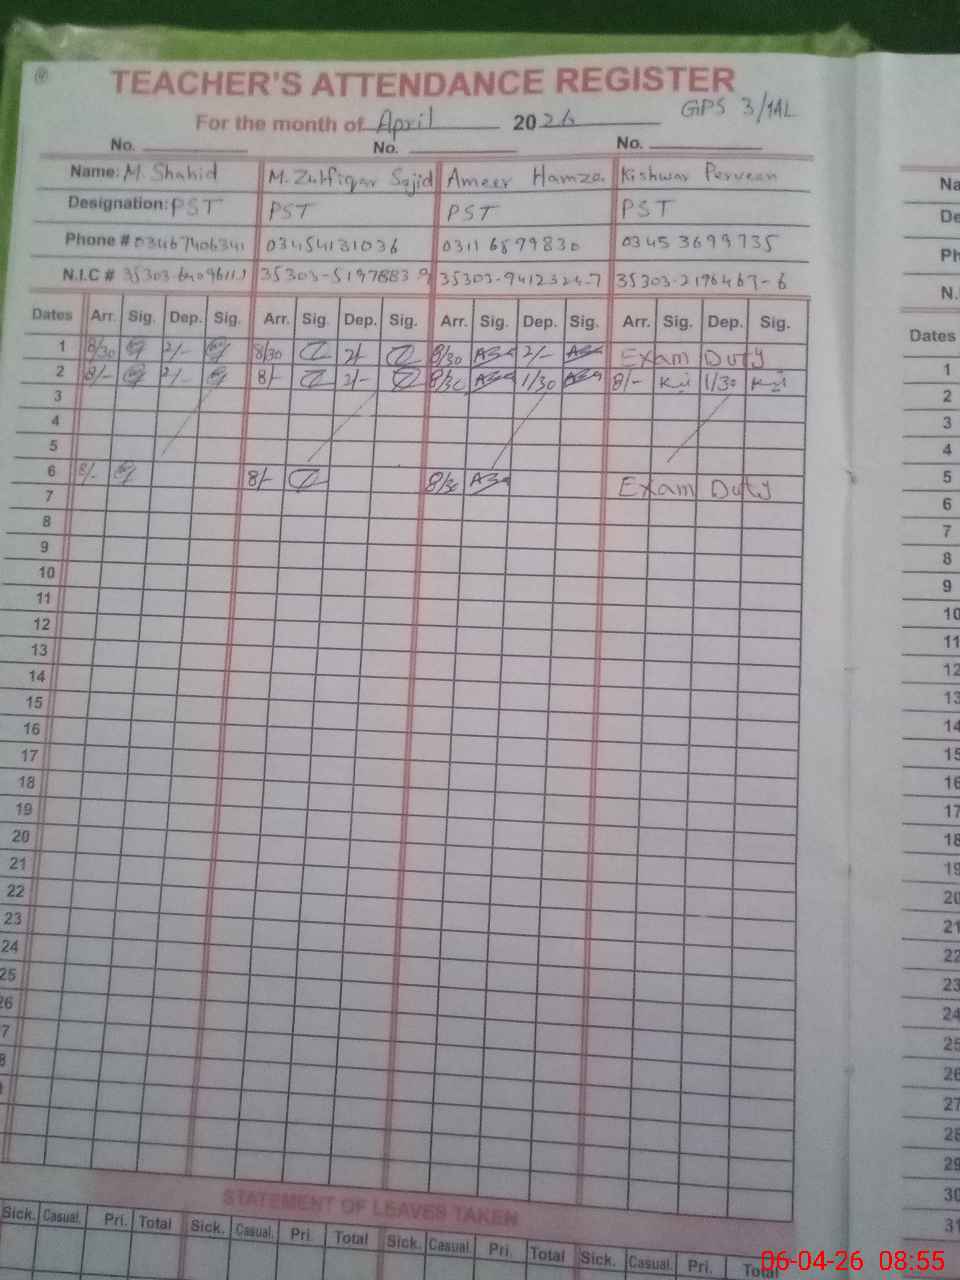 TEACHER'S ATTENDANCE REGISTER
For the month of April 2026 GPS 3/1AL
No. No. No.
Name: M. Shahid M. Zulfiqar Sajid Ameer Hamza Kishwar Perveen
Designation: PST PST PST PST
Phone # 03467406341 03454131036 0311 6879830 0345 3699735
N.I.C # 35303-5197883 9 35303-9412324-7 35303-2196467-6
Dates Arr. Sig. Dep. Sig. Arr. Sig. Dep. Sig. Arr. Sig. Dep. Sig. Arr. Sig. Dep. Sig.
1 8/30 2/- 8/30 2/- 8/30 2/- Exam Duty
2 8/- 2/- 8/- 2/- 8/30 1/30 8/- 1/30
3
4
5
6 8/- 8/- 8/30 Exam Duty
7
8
9
10
11
12
13
14
15
16
17
18
19
20
21
22
23
24
25
26
7
8
STATEMENT OF LEAVES TAKEN
Sick. Casual. Pri. Total Sick. Casual. Pri. Total Sick. Casual. Pri. Total Sick. Casual. Pri. Total
Na
De
Ph
N.I
Dates
1
2
3
4
5
6
7
8
9
10
11
12
13
14
15
16
17
18
19
20
21
22
23
24
25
26
27
28
29
30
31
06-04-26 08:55